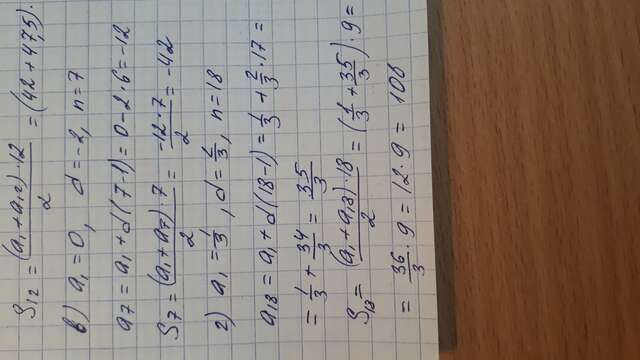 S₁₂ = (a₁+a₁₂)·12/2 = (42+47,5).
в) a₁=0, d=-2, n=7
a₇ = a₁+d(7-1) = 0-2·6 = -12
S₇ = (a₁+a₇)·7/2 = -12·7/2 = -42
г) a₁ = 1/3, d = 2/3, n=18
a₁₈ = a₁+d(18-1) = 1/3 + 2/3·17 =
= 1/3 + 34/3 = 35/3
S₁₈ = (a₁+a₁₈)·18/2 = (1/3 + 35/3)·9 =
= 36/3·9 = 12·9 = 108